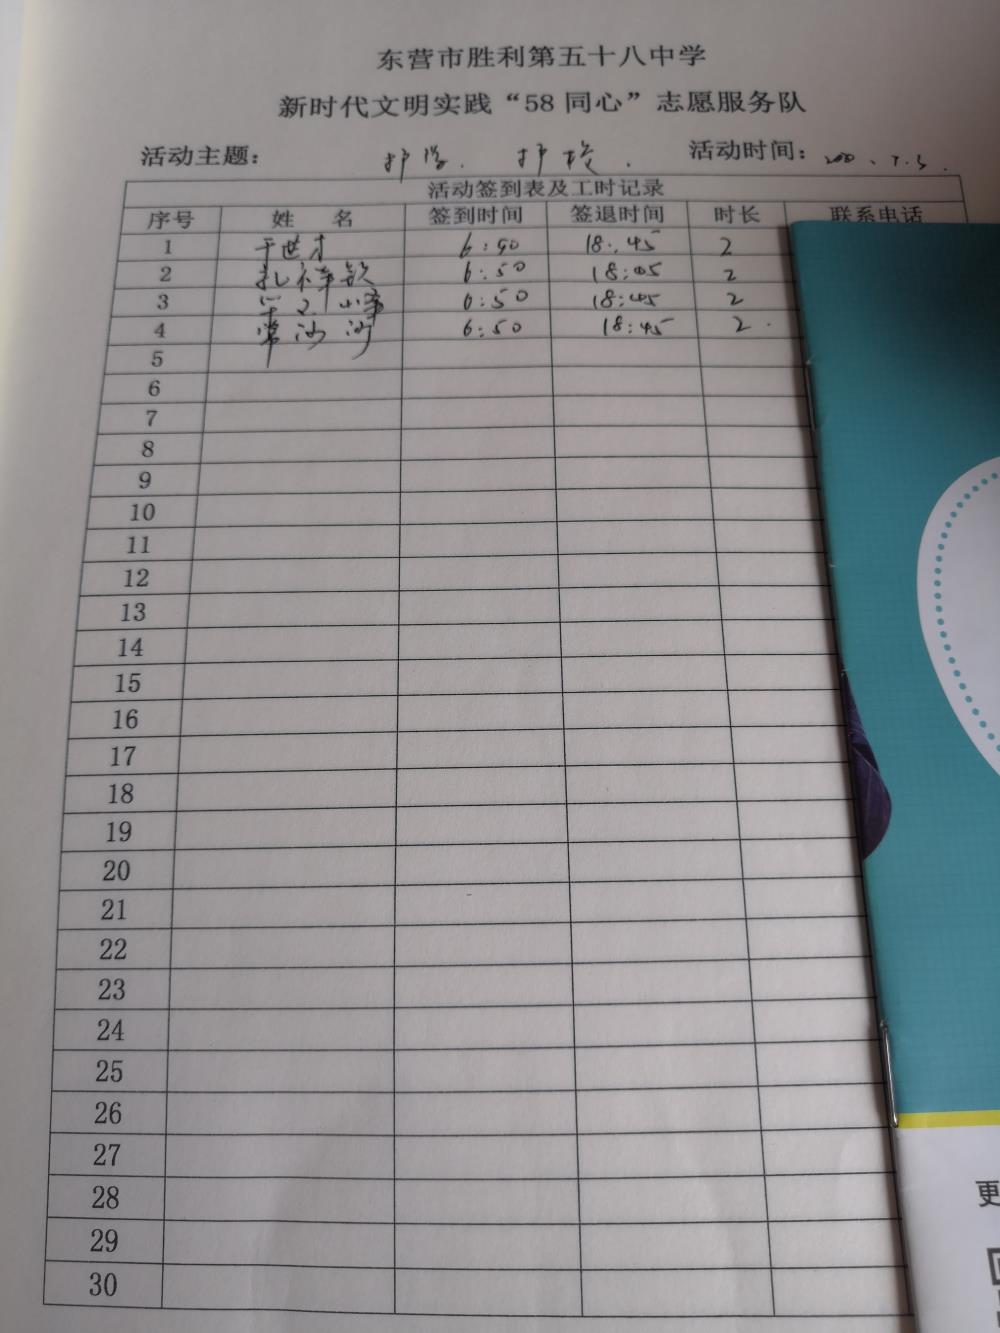 东营市胜利第五十八中学
新时代文明实践“58同心”志愿服务队
活动主题： 护学. 护校. 活动时间：
活动签到表及工时记录
序号 姓 名 签到时间 签退时间 时长 联系电话
1 于世才 6:50 18:45 2
2 6:50 18:45 2
3 6:50 18:45 2
4 常沙沙 6:50 18:45 2.
5
6
7
8
9
10
11
12
13
14
15
16
17
18
19
20
21
22
23
24
25
26
27
28
29
30
更